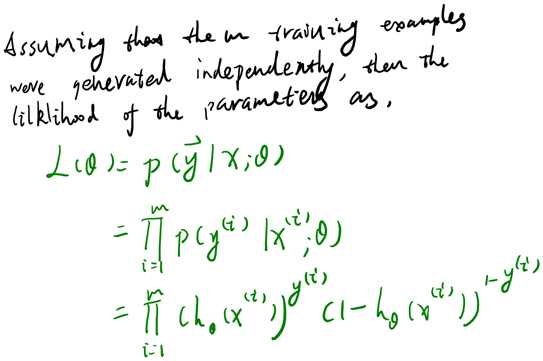 Assuming that the m training examples
were generated independently, then the
lilklihood of the parameters as,
L(θ) = p(y⃗ | X; θ)
= ∏_{i=1}^{m} p(y^{(i)} | x^{(i)}; θ)
= ∏_{i=1}^{m} (h_θ(x^{(i)}))^{y^{(i)}} (1 - h_θ(x^{(i)}))^{1-y^{(i)}}